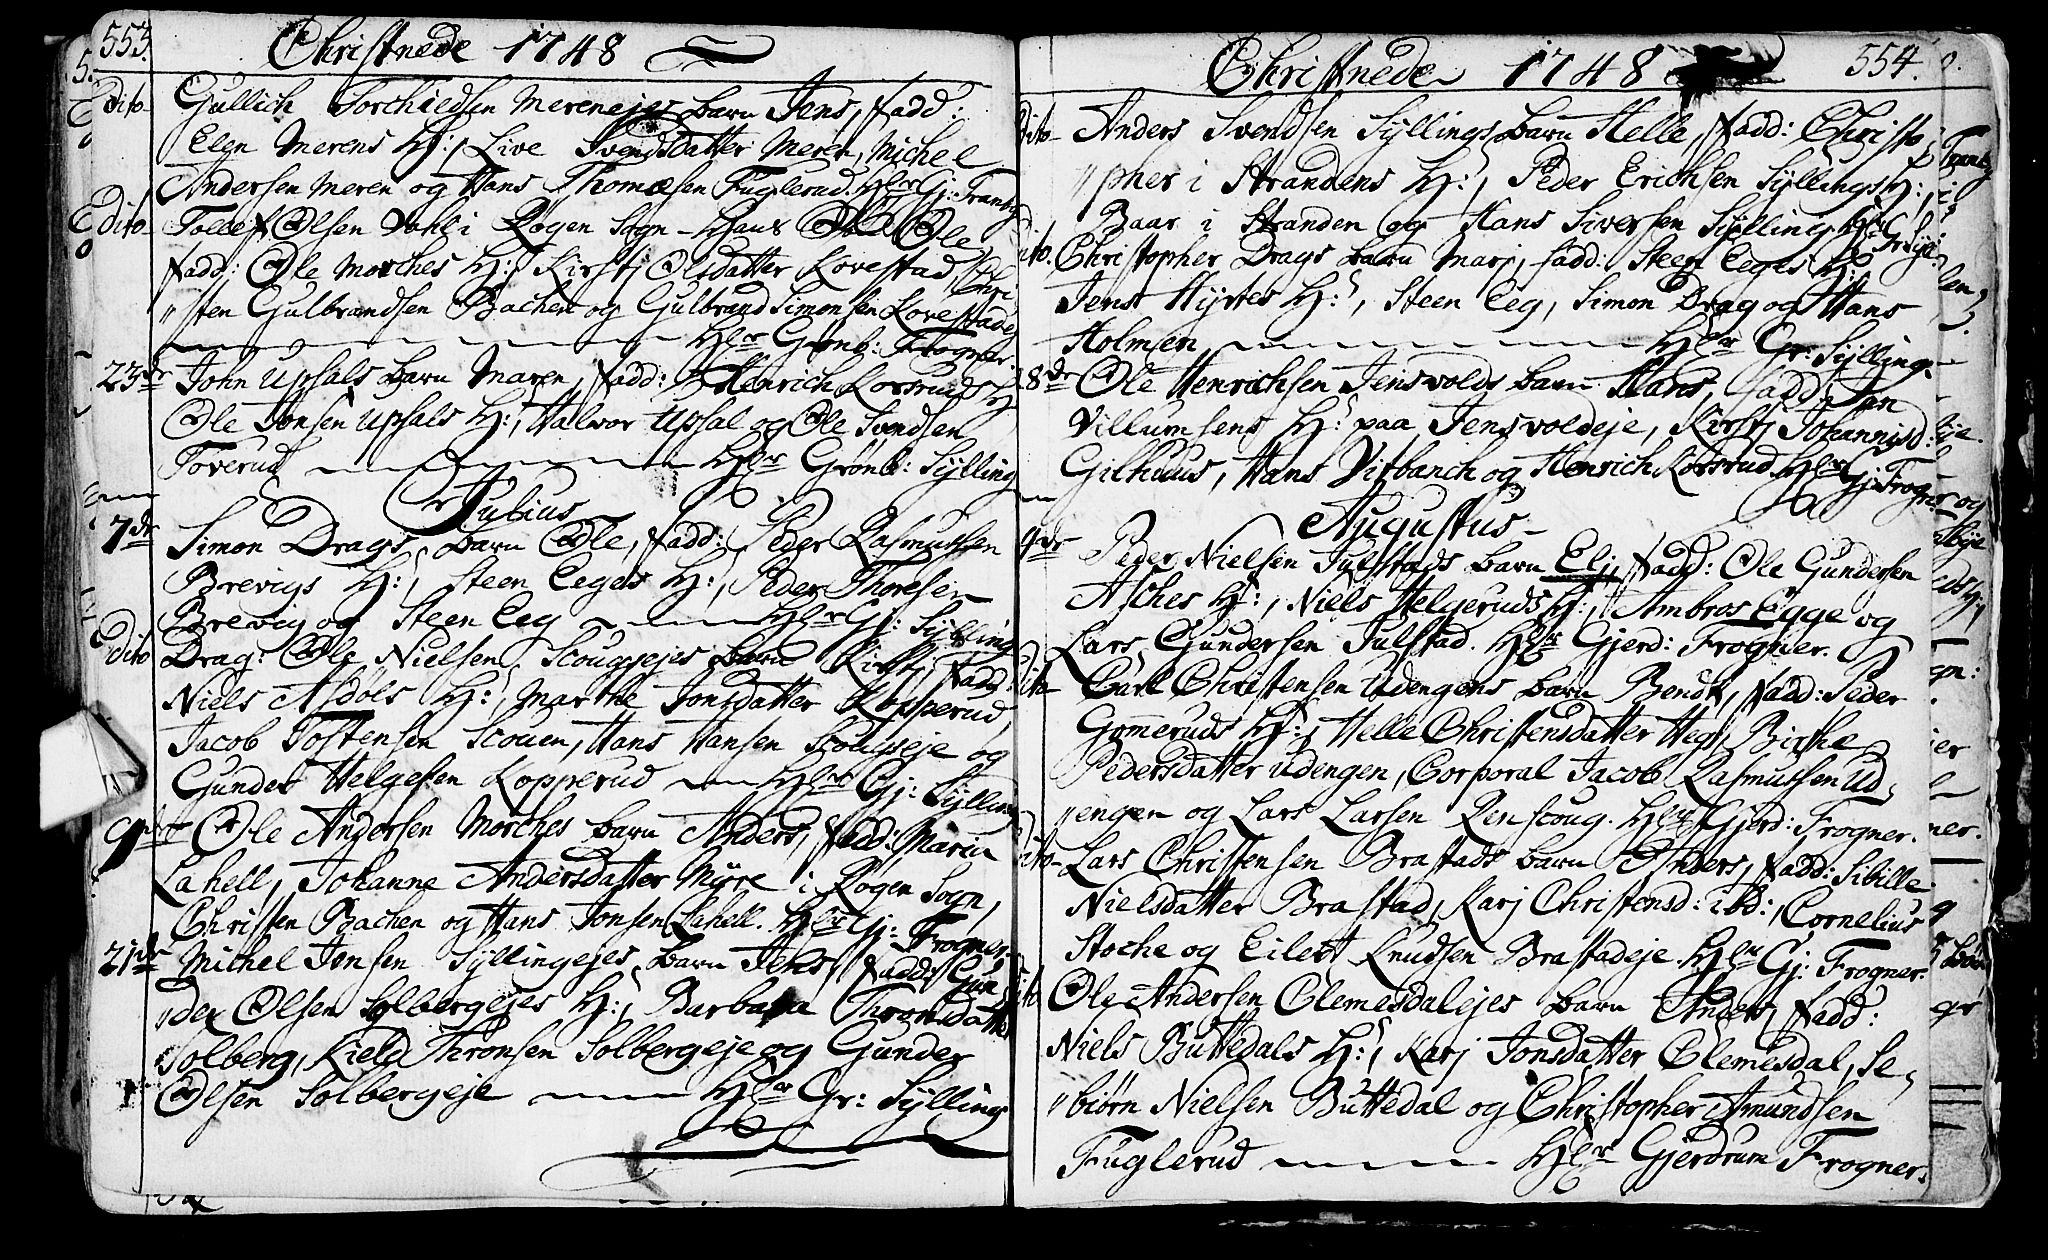 553. Christnede 1748
dito Gullich Torchiedsen Merenejes barn Jens, fadd:
Elen Merens H:, Live Svendsdatter Meren, Michel
Andersen Meren og Hans Thomesen Fuglerud. Hlr Gj: Tranby
dito Tolle Olsen Dahl i Rogen Sogn - Hans Ole
fadd: Ole Morches H:, Kirstj Olsdatter Lovestad, Chri
"sten Gulbrandsen Bachen og Gulbrand Simonsen Lovestadej
Hlr Grønb: Frogner
23de John Upsals barn Maren, fadd: Henrich Korsruds H
Ole Jonsen Upsals H:, Halvor Upsal og Ole Svendsen
Toverud Hlr Grønb: Sylling
Julius
7de Simon Drags barn Ole, fadd: Peder Rasmussen
Brevigs H:, Steen Eeges H:, Peder Thoresen
Brevig og Steen Eeg Hlr Gj: Sylling
dito Drag: Ole Nielsen Scougsejes barn Kirstj, fadd:
Niels Asdøls H:, Marthe Jonsdatter Kopperud
Jacob Tostensen Scouen, Hans Hansen Scougseje og
Gunder Helgesen Kopperud Hlr Gj: Sylling
9de Ole Andersen Morches barn Anders, fadd: Maria
Lahell, Johanne Andersdatter Myre i Rogen Sogn,
Christen Bachen og Hans Jonsen Lahell. Hlr Gj: Frogner
21de Michel Jonsen Syllingejes barn Jens, fadd: Gun
"der Olsen Solbergejes H:, Barbara Thronsdatter
Solberg, Kield Thronsen Solbergeje og Gunder
Olsen Solbergeje Hlr Gr: Sylling
Christnede 1748 554.
dito Anders Svendsen Syllings barn Helle, fadd: Christo
"pher i Strandens H:, Peder Erichsen Syllings H:,
Baar i Stranden og Hans Siversen Sylling Hlr Gr: Sylling
dito. Christopher Drags barn Marj, fadd: Steen Eeges H:
Jens Hyrtes H:, Steen Eeg, Simon Drag og Hans
Holmen Hlr Gr: Sylling
28de Ole Henrichsen Jensvolds barn Hans, fadd: Jan
Villumsens H: paa Jensvoldeje, Kirstj Johannisd:
Gilhuus, Hans Vitbanch og Henrich Korsrud. Hlr Gj: Frogner
Augustus
9de Peder Nielsen Julstads barn Elj, fadd: Ole Gundersen
Asches H:, Niels Helgeruds H:, Ambros Egge og
Lars Gundersen Julstad. Hlr Gjerd: Frogner.
dito Carl Christensen Udengens barn Bendt, fadd: Peder
Gomeruds H:, Helle Christensdatter Heg, Birthe
Pedersdatter Udengen, Corporal Jacob Rasmussen Ud
"engen og Lars Larsen Renscoug. Hlr Gjerd: Frogner.
dito Lars Christensen Brastads barn Anders, fadd: Sibille
Nielsdatter Brastad, Karj Christensd: ibd:, Cornelius
Stoche og Eilert Knudsen Brastadeje. Hlr Gj: Frogner.
dito Ole Andersen Clemesdalejes barn Anders, fadd:
Niels Buttedals H:, Karj Jonsdatter Clemesdal, Se
"biørn Nielsen Buttedal og Christopher Amundsen
Fuglerud Hlr Gjerdrum Frogner.